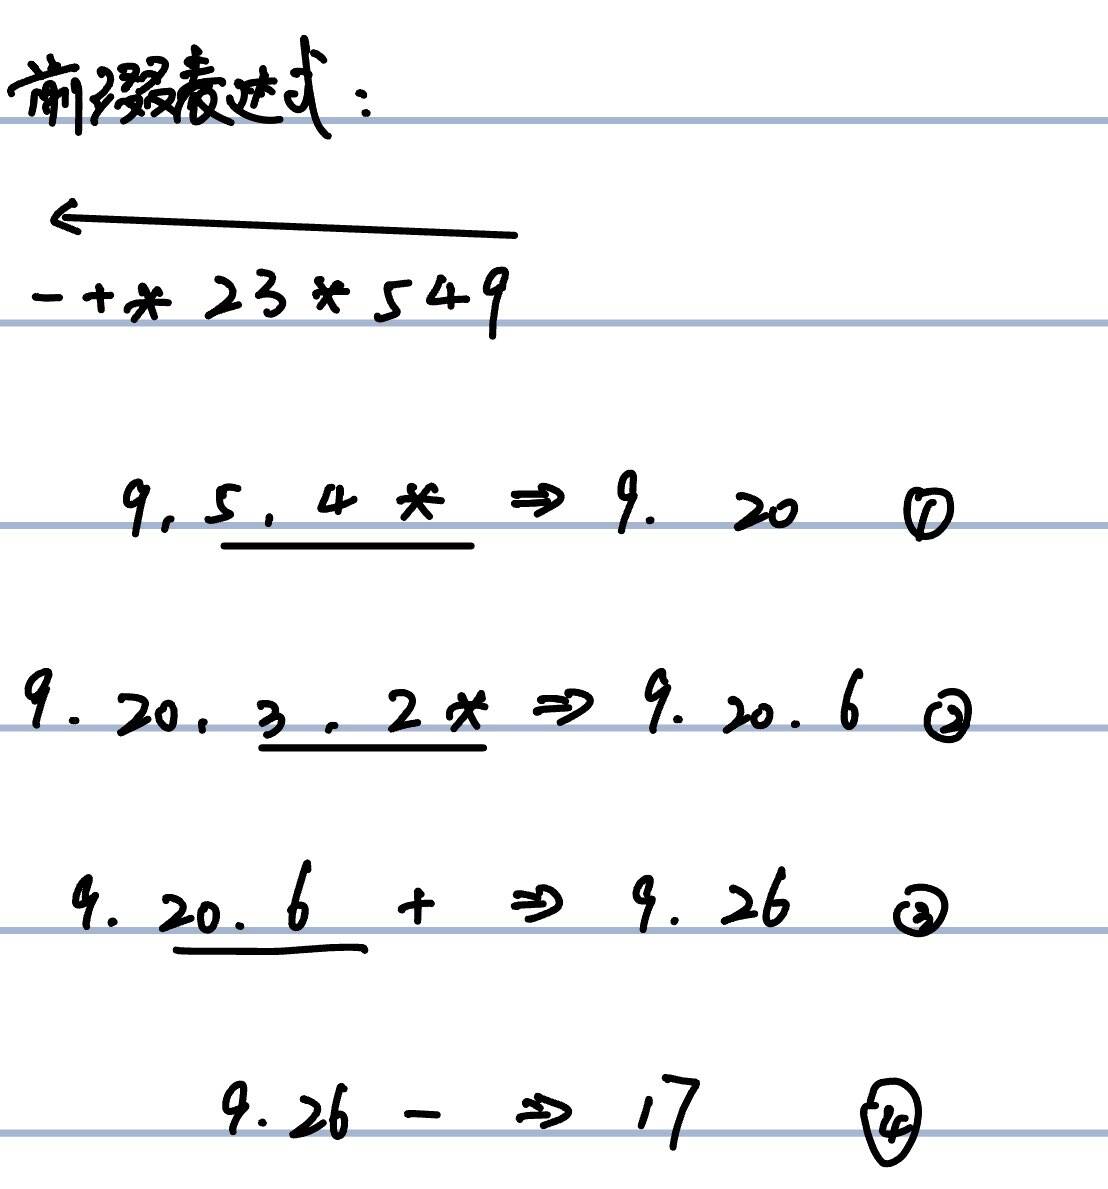 前缀表达式:
- + * 2 3 * 5 4 9
9, 5, 4 * ⇒ 9. 20 ①
9. 20, 3. 2 * ⇒ 9. 20. 6 ②
9. 20. 6 + ⇒ 9. 26 ③
9. 26 - ⇒ 17 ④